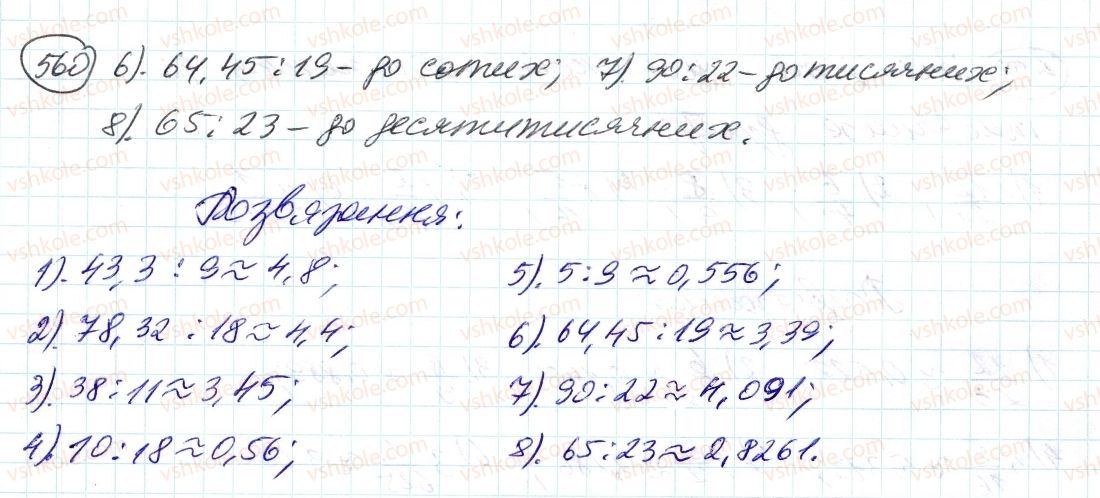 560 6). 64,45 : 19 – до сотих; 7) 90 : 22 – до тисячних;
8). 65 : 23 – до десятитисячних.
Розвязання:
1). 43,3 : 9 ≈ 4,8;
2). 78,32 : 18 ≈ 4,4;
3). 38 : 11 ≈ 3,45;
4). 10 : 18 ≈ 0,56;
5). 5 : 9 ≈ 0,556;
6). 64,45 : 19 ≈ 3,39;
7). 90 : 22 ≈ 4,091;
8). 65 : 23 ≈ 2,8261.
vshkole.com